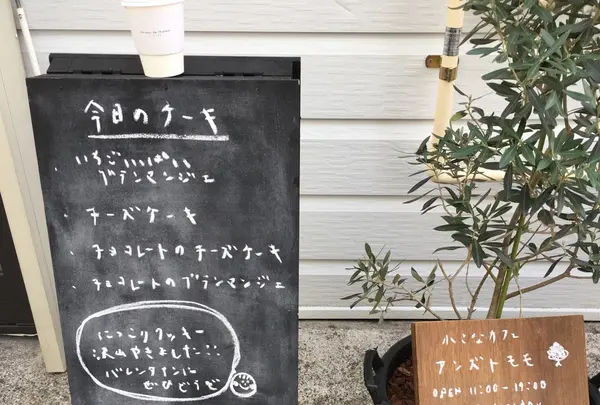 今日のケーキ
・いちごいっぱい
ブランマンジェ
・チーズケーキ
・チョコレートのチーズケーキ
・チョコレートのブランマンジェ
にっこりクッキー
沢山やきました
バレンタインに
ぜひどうぞ
小さなカフェ
アンズトモモ
OPEN 11:00-19:00